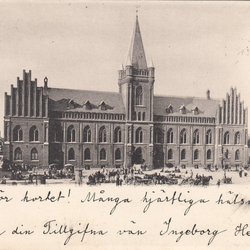 för kortet! Många hjärtliga häls
din Tillgifna vän Ingeborg